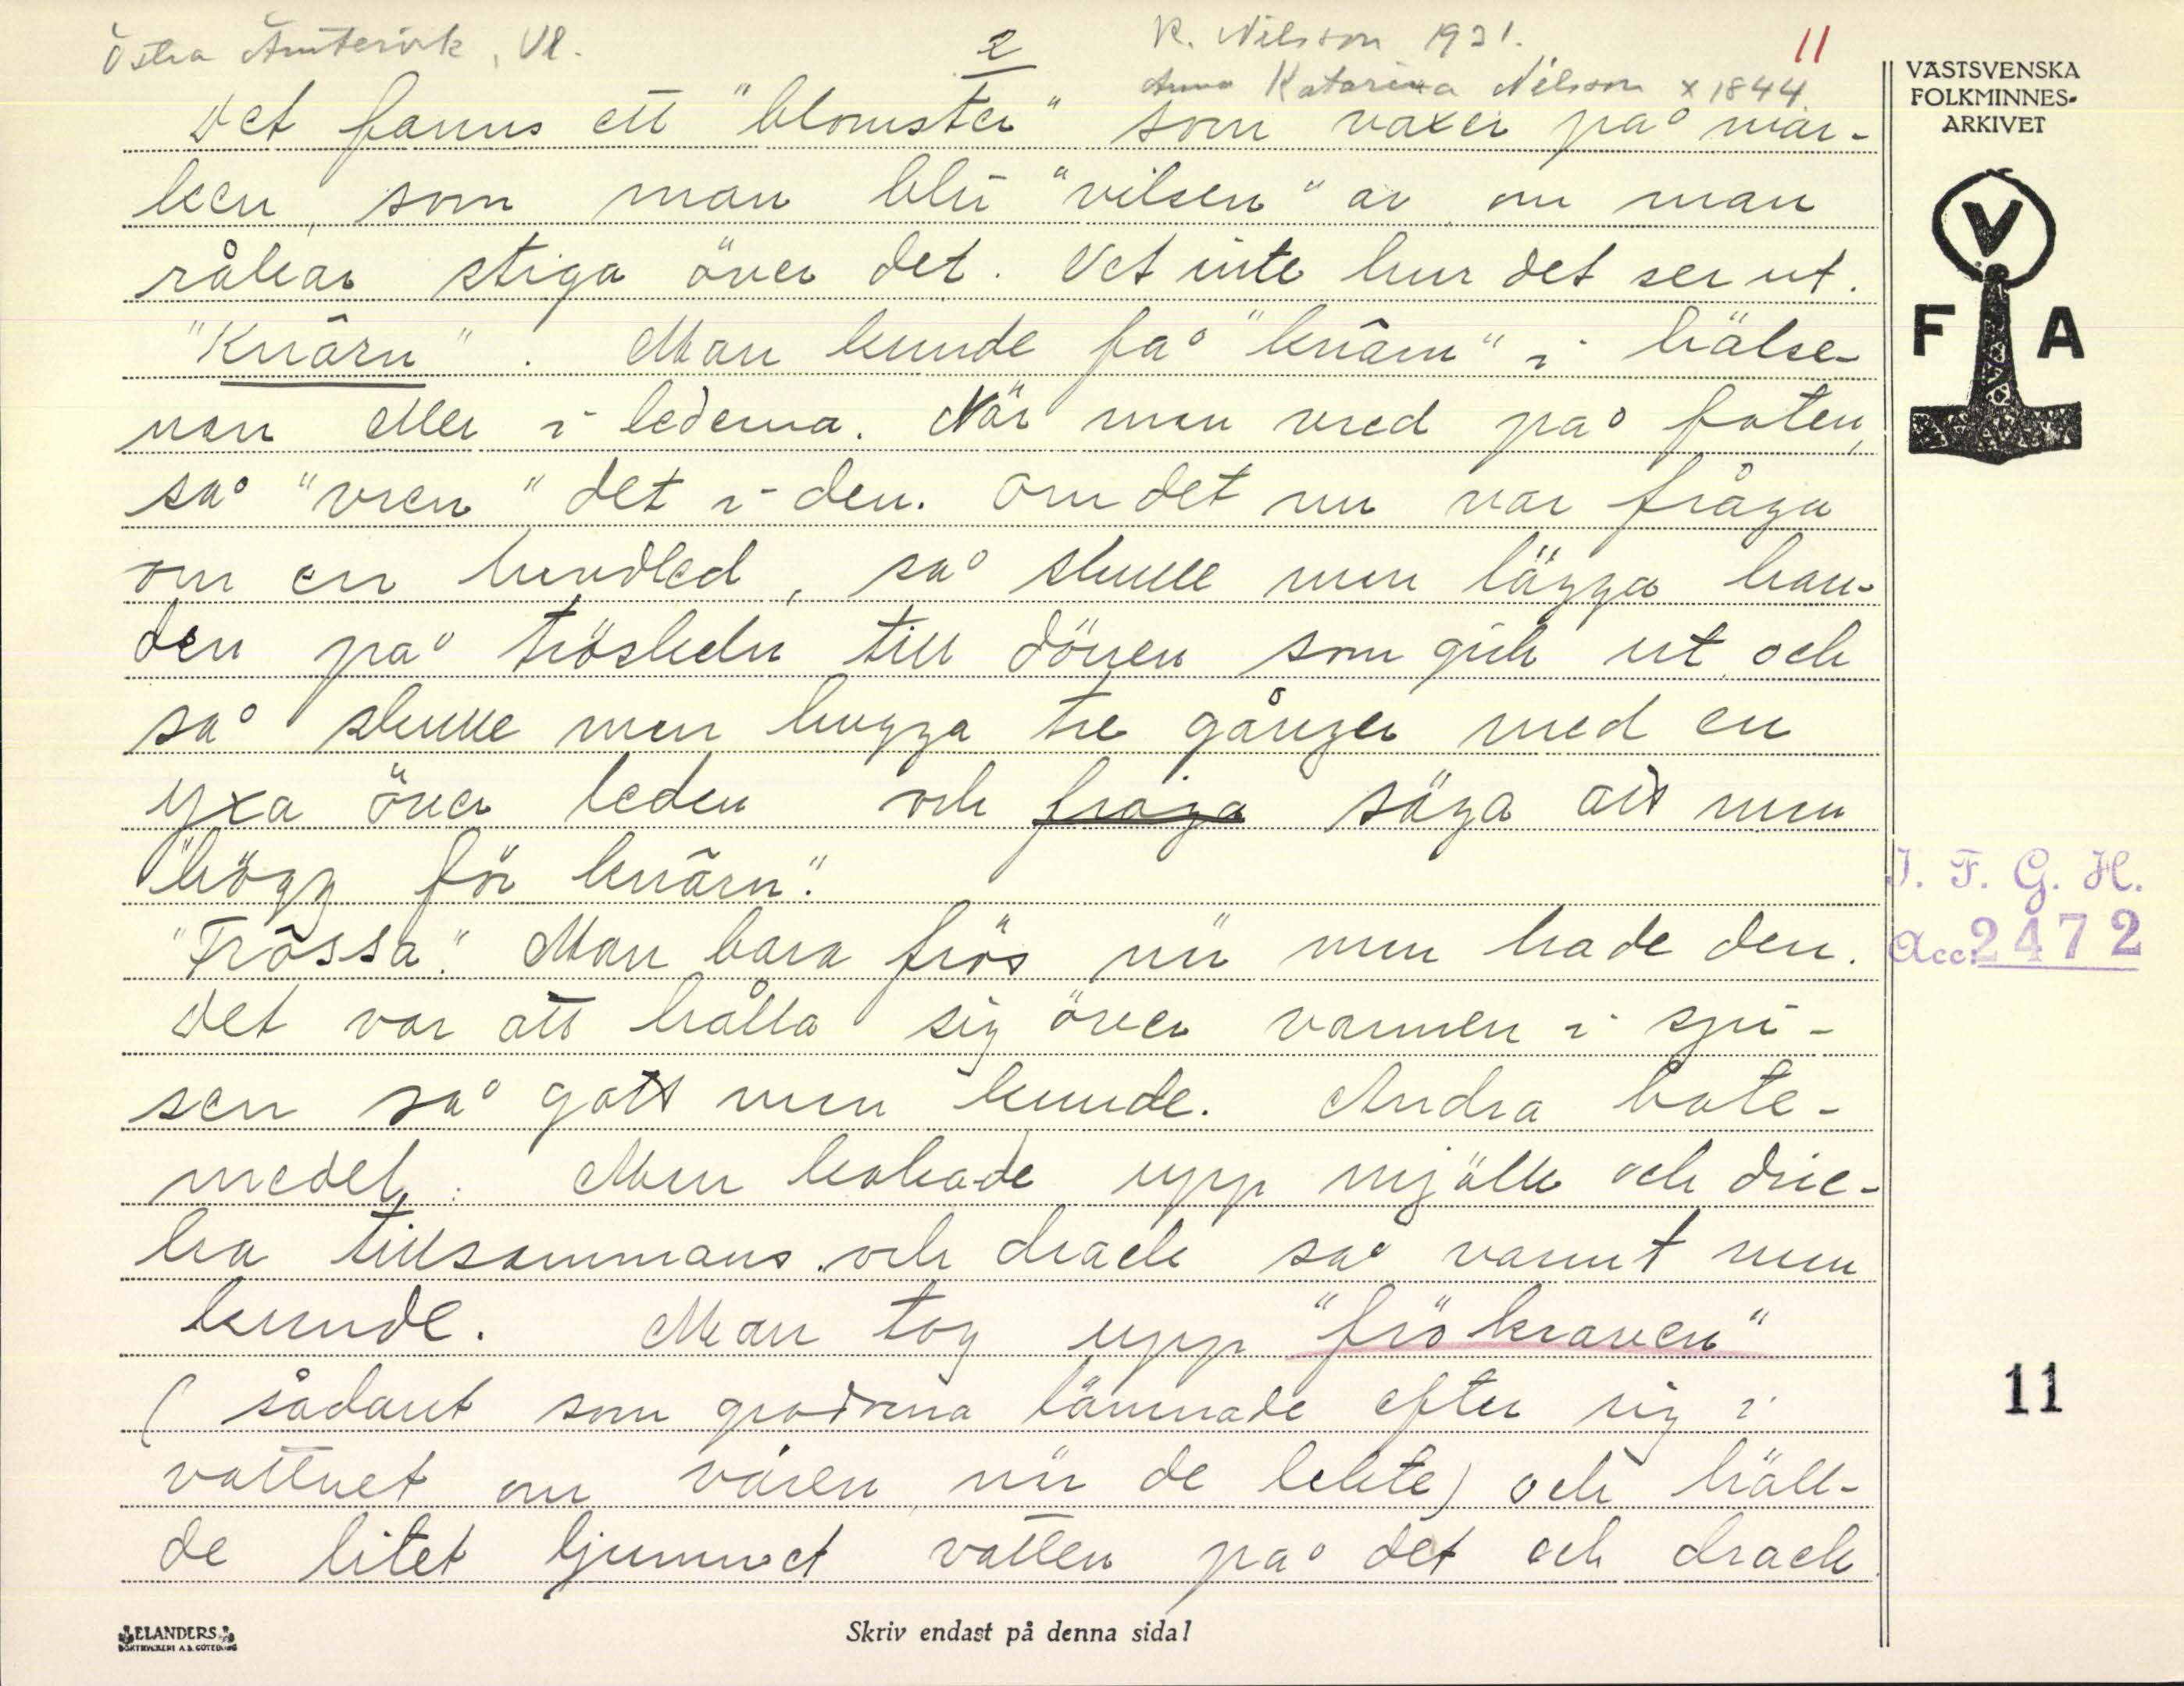 Östra Ämtervik, Vl.
2
K. Nilsson 1931.
11
Anna Katarina Nilsson x 1844.
Det fanns ett "blomster" som växer på mar-
ken, som man blir "vilsen" av om man
råkar stiga över det. Vet inte hur det ser ut.
"Knårn". Man kunde få "knårn" i hälse-
nan eller i lederna. När man vred på foten,
så "vren" det i den. Om det nu var fråga
om en handled, så skulle man lägga han-
den på tröskeln till dörren som gick ut och
så skulle man hugga tre gånger med en
yxa över leden och fråga säga att man
"högg för knårn."
"Fråssa." Man bara frös när man hade den.
Det var att hålla sig över varmen i spi-
sen så gott man kunde. Andra bote-
medel: Man kokade upp mjölk och dric-
ka tillsammans och drack så varmt man
kunde. Man tog upp "frökraven"
(sådant som grodorna lämnade efter sig i
vattnet om våren, när de lekte) och häll-
de litet ljummet vatten på det och drack
VÄSTSVENSKA
FOLKMINNES-
ARKIVET
V
F A
I. F. G. H.
Acc. 2472
11
ELANDERS
BOKTRYCKERI A.B. GÖTEBORG
Skriv endast på denna sida!